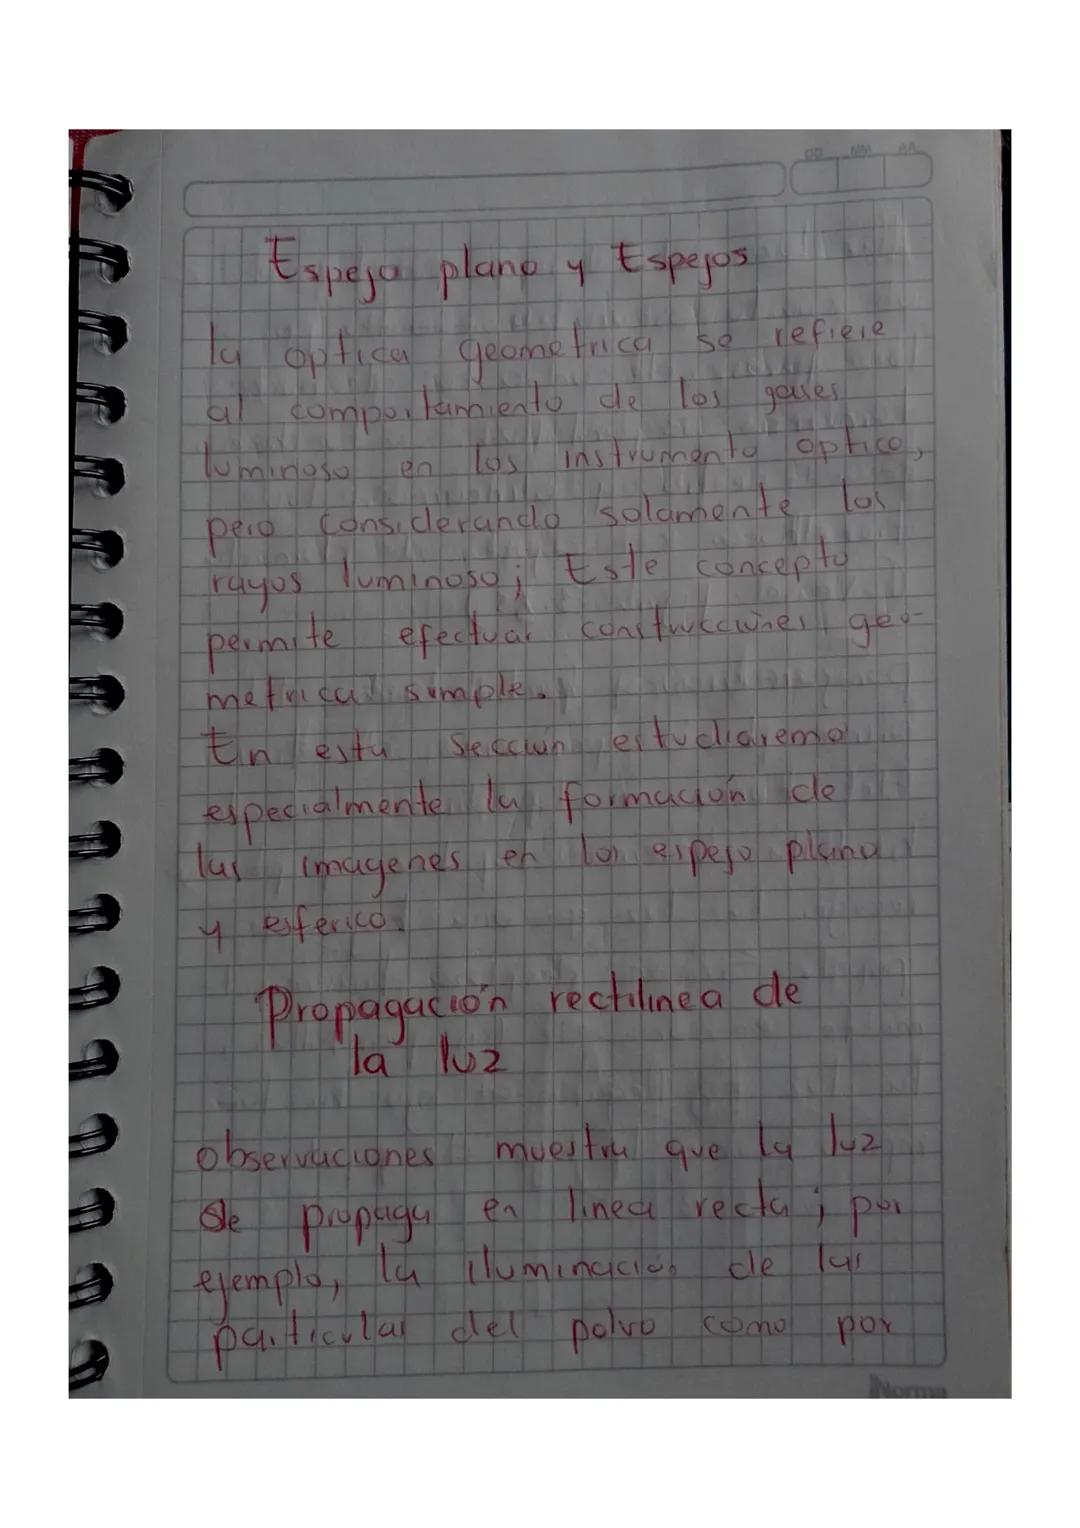 DD MM AA
Espejo plano y Espejos
la optica geometrica se refiere
al comportamiento de los gases
luminoso en los instrumento optico,
pero considerando solamente los
rayos luminoso; Este concepto
permite efectuar construcciones geo-
metrica simple.
En esta Sección estudiaremo
especialmente la formación de
las imagenes en los espejo plano
y esferico.
Propagación rectilinea de
la luz
observaciones muestra que la luz
Se propaga en linea recta; por
ejemplo, la iluminación de las
particulas del polvo como por
Norma